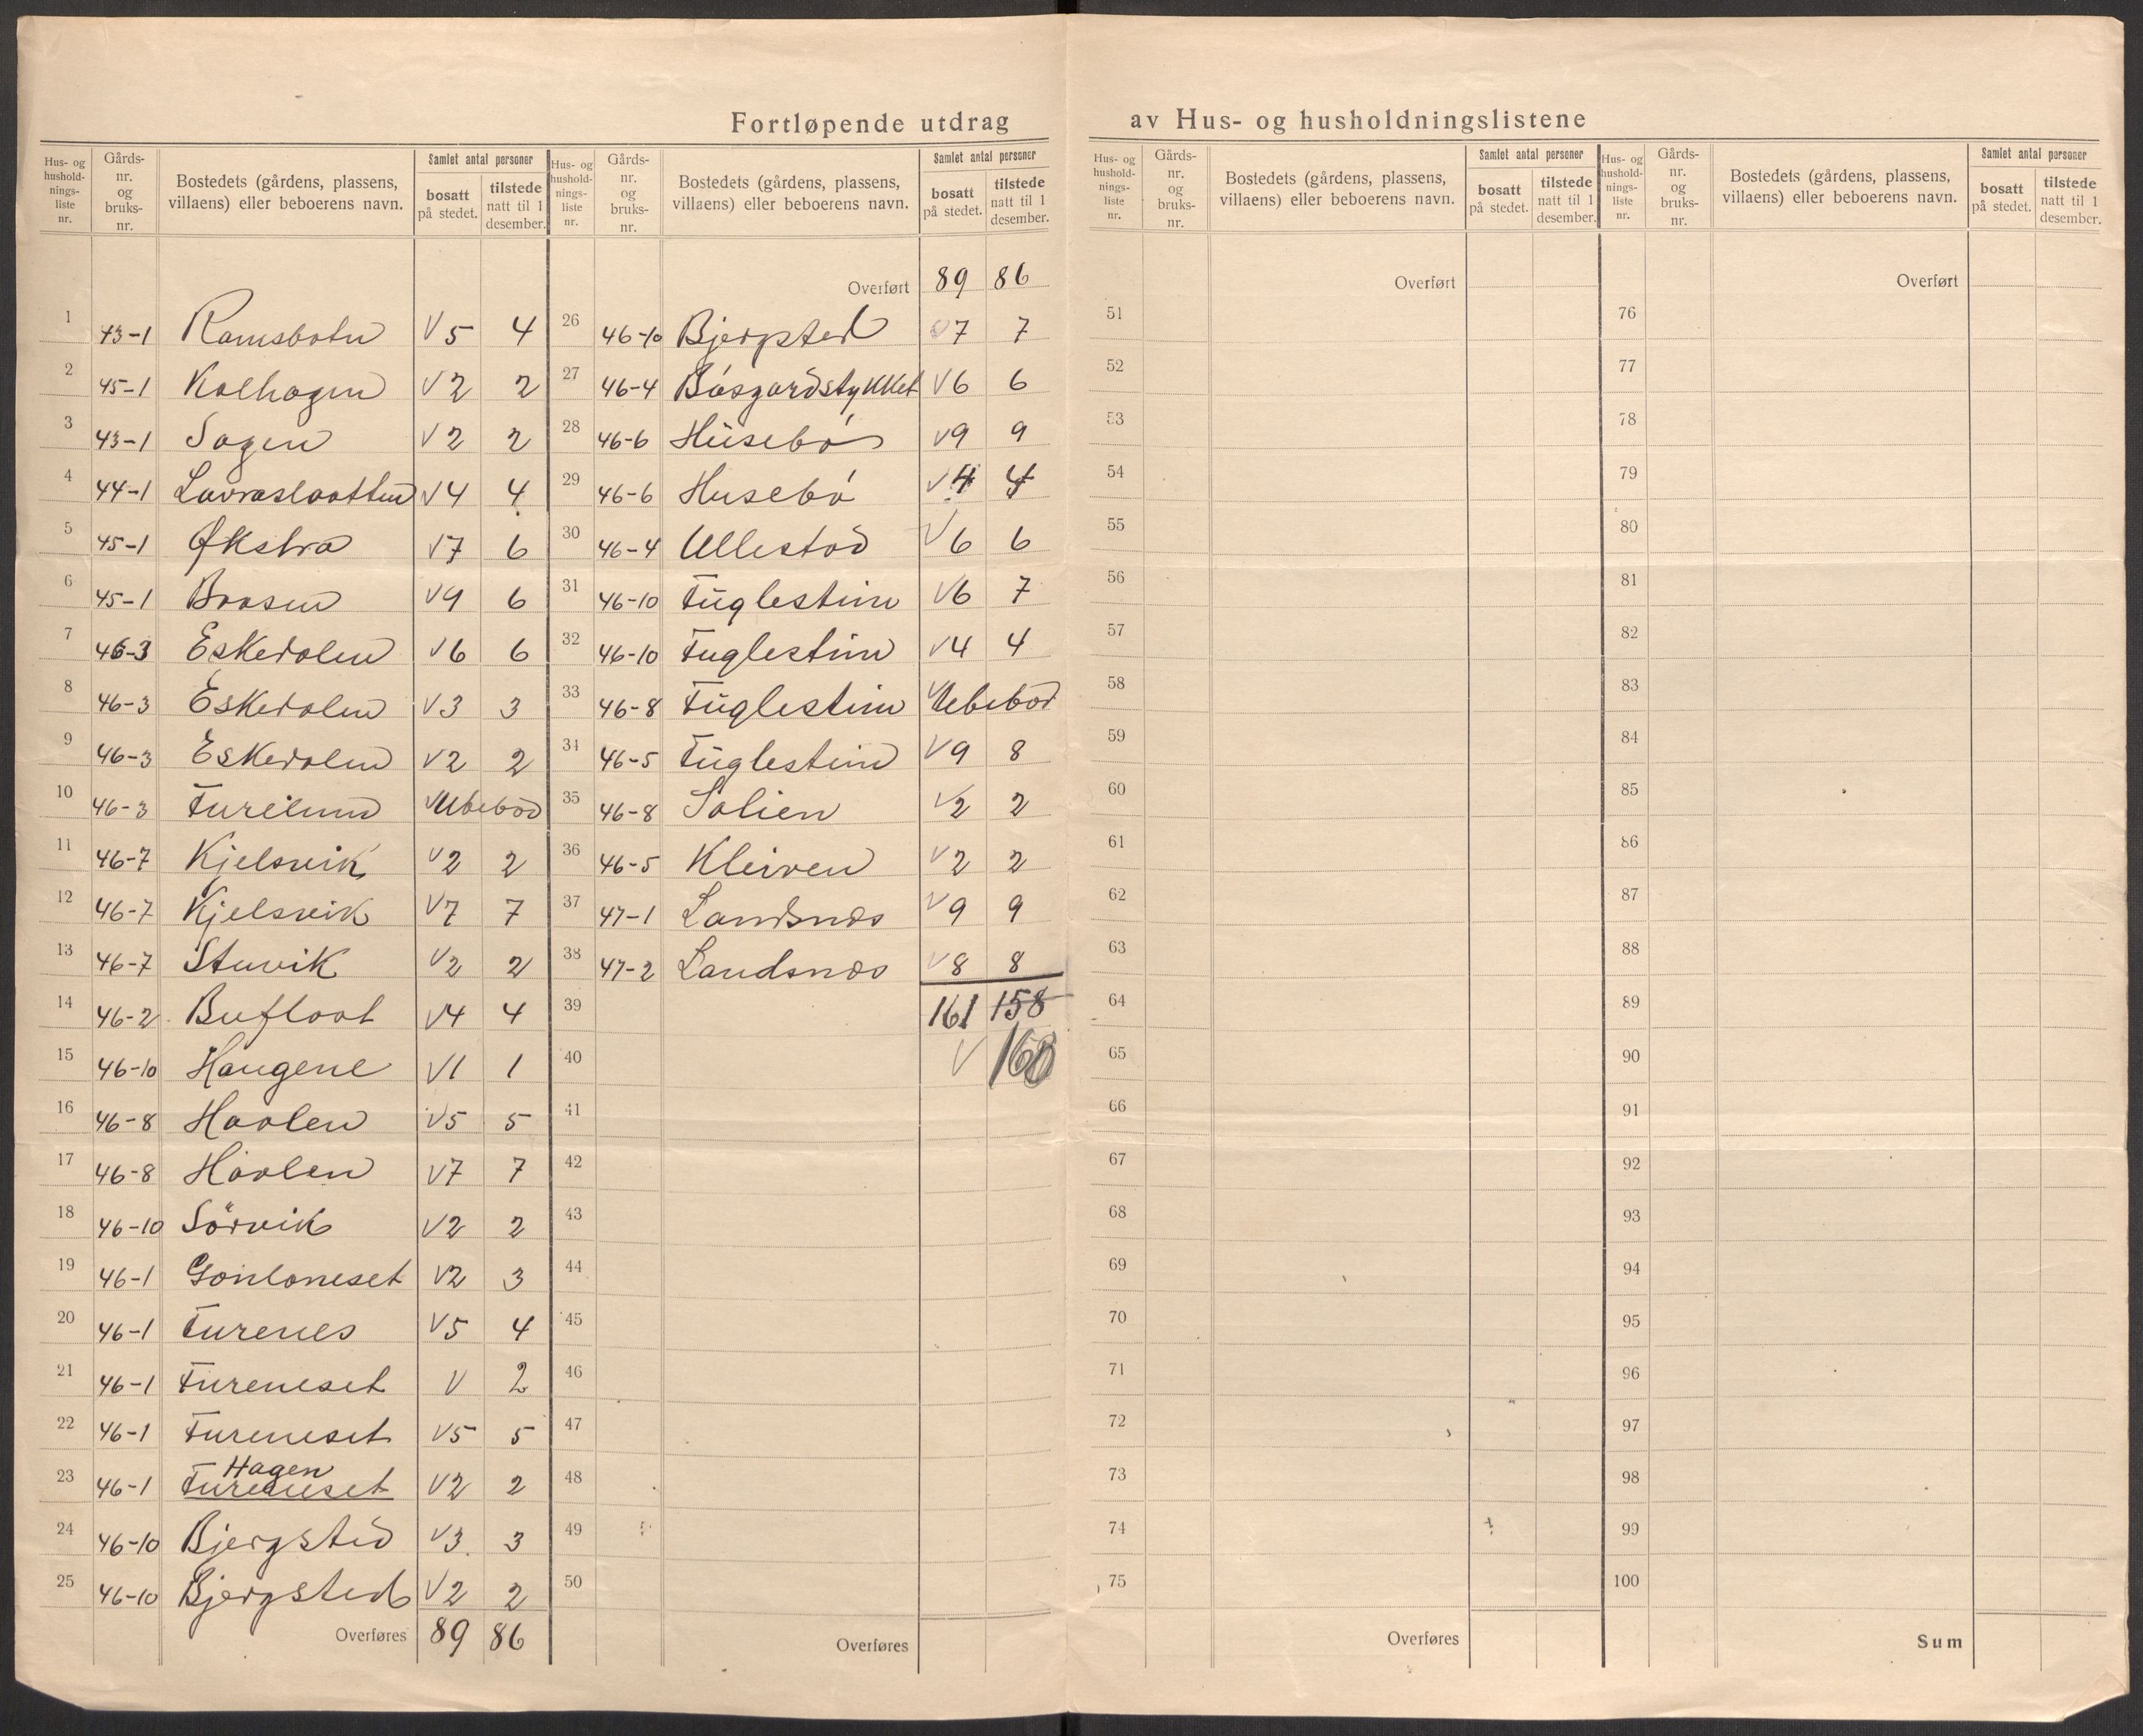 Fortløpende utdrag av Hus- og husholdningslistene
Hus- og hushold-nings-liste nr. | Gårds-nr. og bruks-nr. | Bostedets (gårdens, plassens, villaens) eller beboerens navn. | Samlet antal personer | bosatt på stedet. | tilstede natt til 1 desember.
1 43-1 Ramsbotn V 5 4
2 45-1 Kolhagen V 2 2
3 43-1 Sagen V 2 2
4 44-1 Lavraslaatten V 4 4
5 45-1 Økstra V 7 6
6 45-1 Braasen V 9 6
7 46-3 Eskedalen V 6 6
8 46-3 Eskedalen V 3 3
9 46-3 Eskedalen V 2 2
10 46-3 Furelund V Ubebod
11 46-7 Kjelsvik V 2 2
12 46-7 Kjelsvik V 7 7
13 46-7 Stuvik V 2 2
14 46-2 Buflaat V 4 4
15 46-10 Haugene V 1 1
16 46-8 Haalen V 5 5
17 46-8 Haalen V 7 7
18 46-10 Sörvik V 2 2
19 46-1 V 2 3
20 46-1 Furenes V 5 4
21 46-1 Fureneset V 2
22 46-1 Fureneset V 5 5
23 46-1 Hagen Fureneset V 2 2
24 46-10 Bjergsted V 3 3
25 46-10 Bjergsted V 2 2
Overføres 89 86
Hus- og hushold-nings-liste nr. | Gårds-nr. og bruks-nr. | Bostedets (gårdens, plassens, villaens) eller beboerens navn. | Samlet antal personer | bosatt på stedet. | tilstede natt til 1 desember.
Overført 89 86
26 46-10 Bjergsted V 7 7
27 46-4 Båsgardstykket V 6 6
28 46-6 Husebö V 9 9
29 46-6 Husebö V 4 4
30 46-4 Ullestad V 6 6
31 46-10 Fuglestein V 6 7
32 46-10 Fuglestein V 4 4
33 46-8 Fuglestein V Ubebod
34 46-5 Fuglestein V 9 8
35 46-8 Solien V 2 2
36 46-5 Kleiven V 2 2
37 47-1 Landsnæs V 9 9
38 47-2 Landsnæs V 8 8
39 161 158
40 V 160
41
42
43
44
45
46
47
48
49
50
Overføres
Hus- og hushold-nings-liste nr. | Gårds-nr. og bruks-nr. | Bostedets (gårdens, plassens, villaens) eller beboerens navn. | Samlet antal personer | bosatt på stedet. | tilstede natt til 1 desember.
Overført
51
52
53
54
55
56
57
58
59
60
61
62
63
64
65
66
67
68
69
70
71
72
73
74
75
Overføres
Hus- og hushold-nings-liste nr. | Gårds-nr. og bruks-nr. | Bostedets (gårdens, plassens, villaens) eller beboerens navn. | Samlet antal personer | bosatt på stedet. | tilstede natt til 1 desember.
Overført
76
77
78
79
80
81
82
83
84
85
86
87
88
89
90
91
92
93
94
95
96
97
98
99
100
Sum